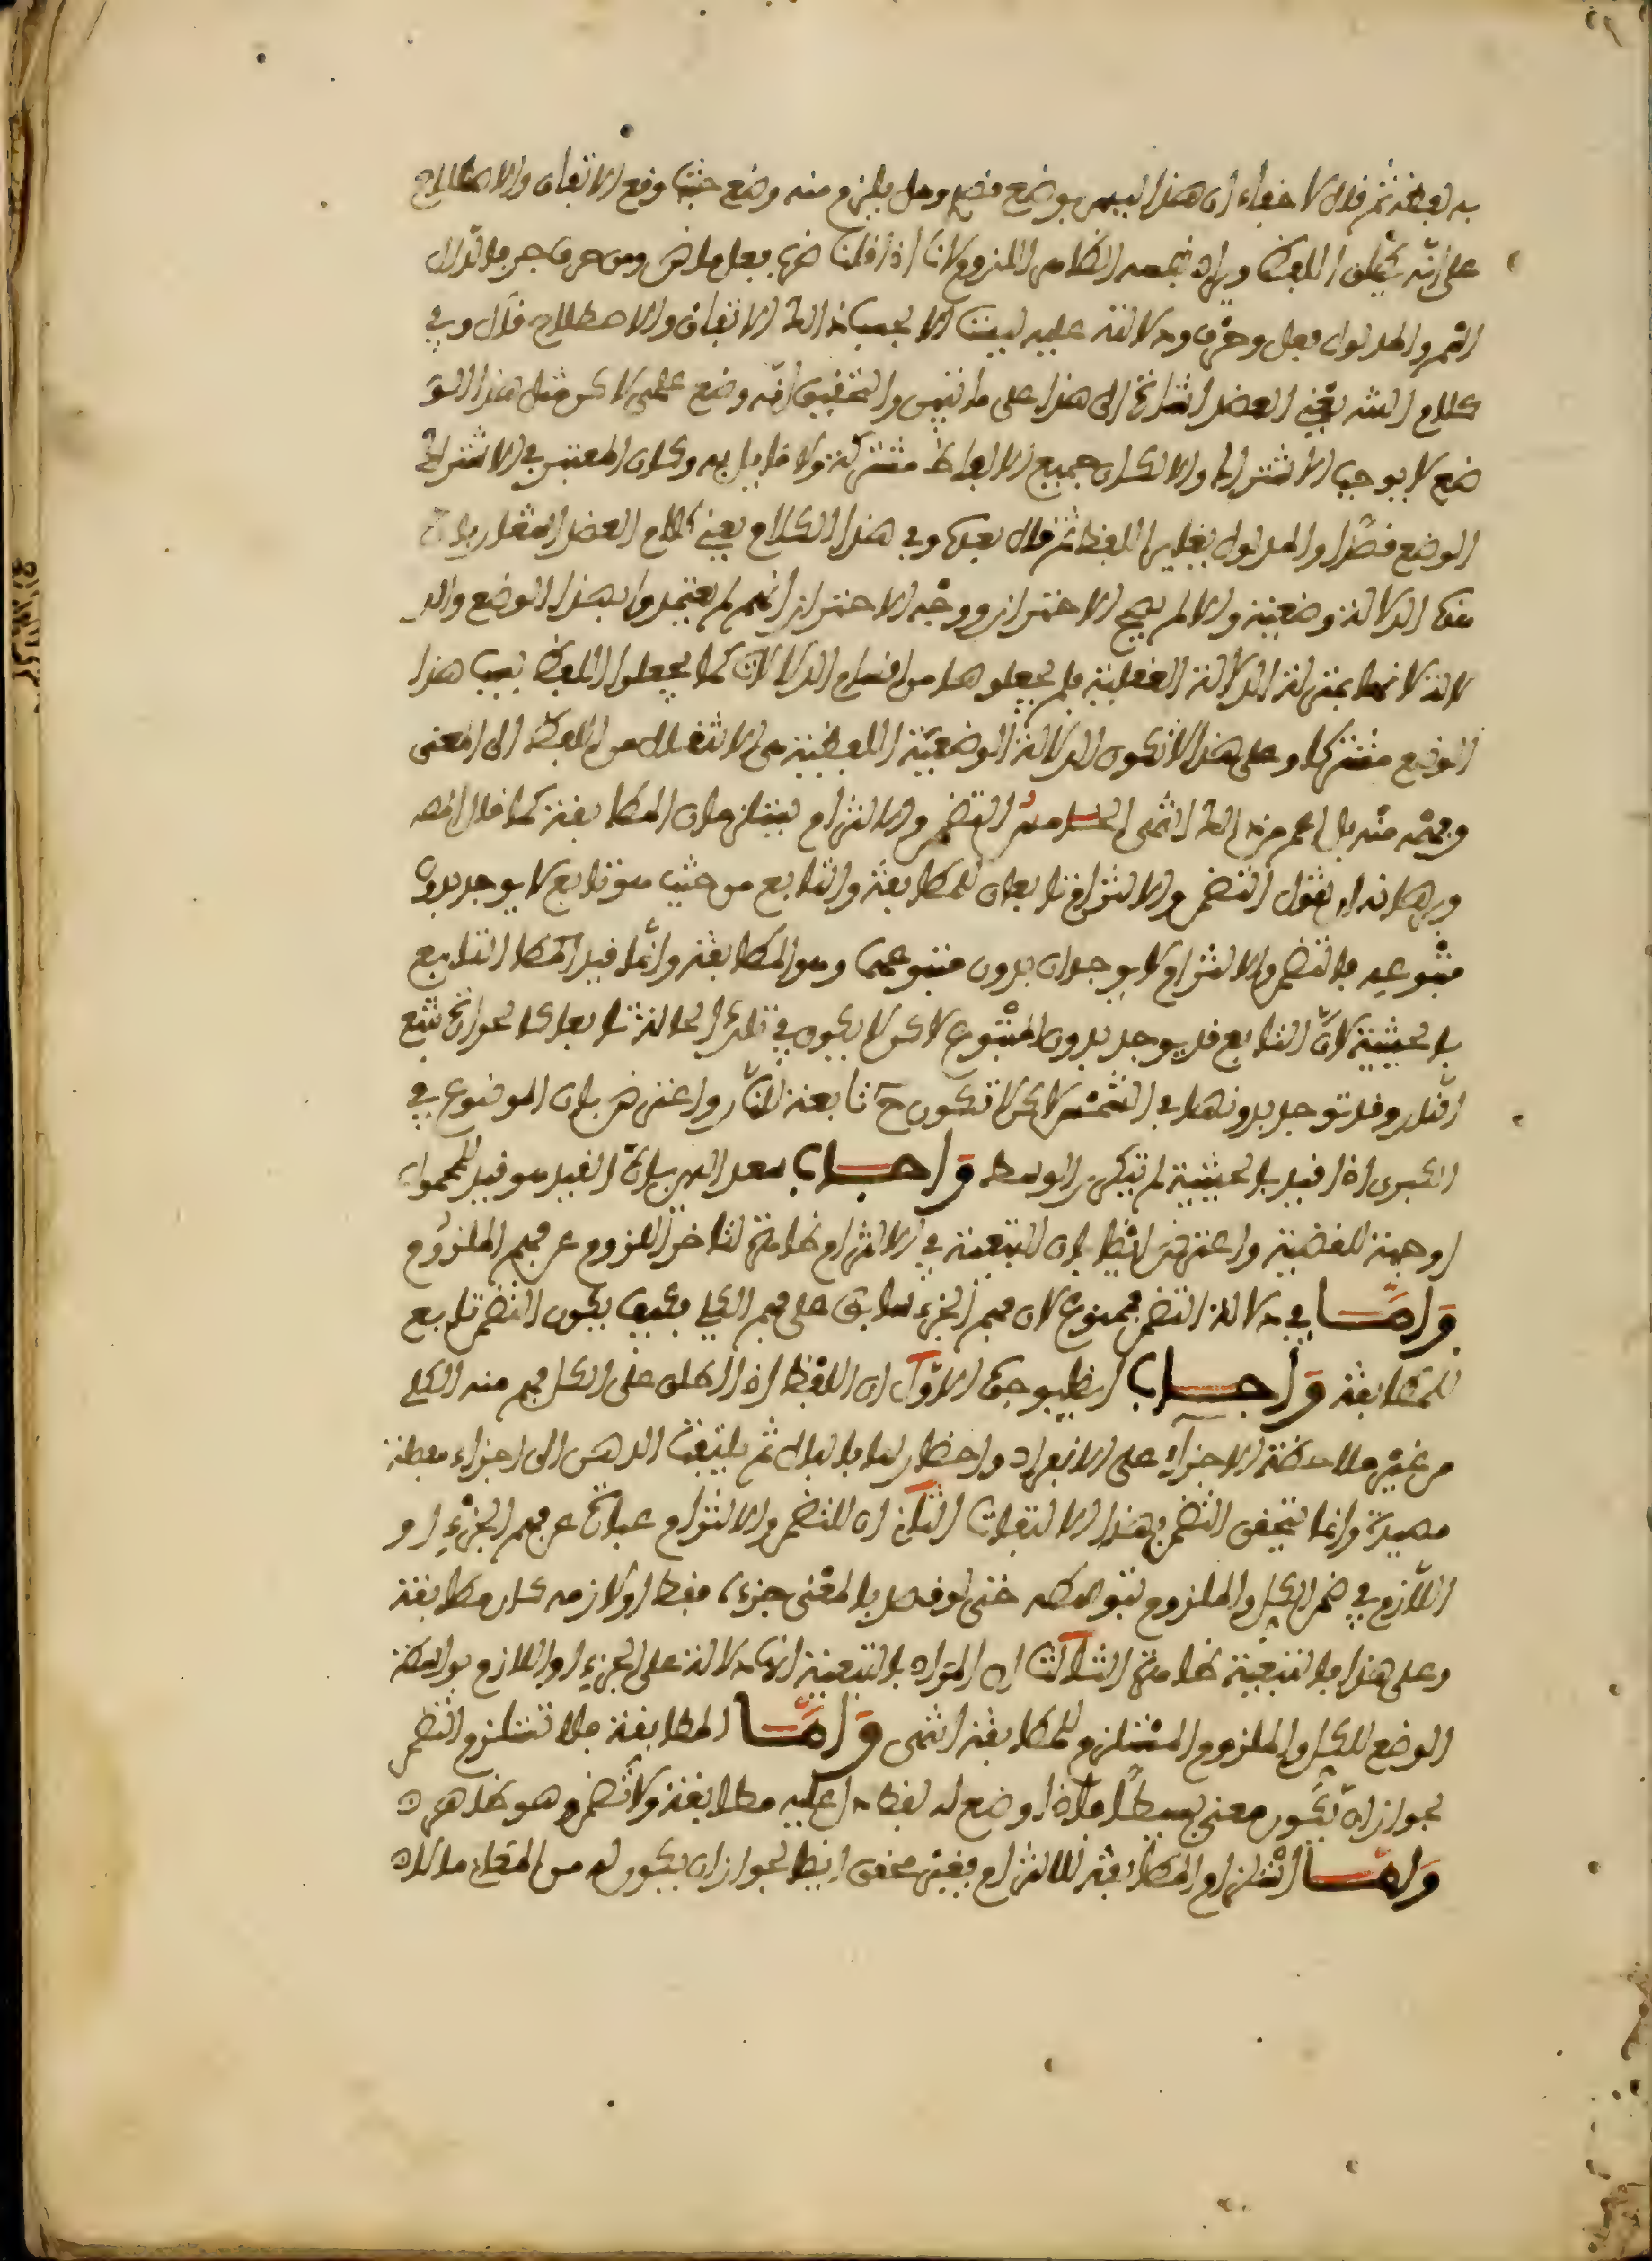 به لفظه ثم قال لا خفاء ان هذا ليس بوضع قصدي وهل يلزم منه وضع حيث وقع الاتفاق والاصطلاح
على انه يطلق اللفظ ويراد نفسه الظاهر اللزوم لانا اذا قلنا ضرب فعل ماض ومن حرف جر فالدال
اسم والمدلول فعل وحرف ودلالته عليه ليست الا بحسب ذلك الاتفاق والاصطلاح قال وفي
كلام العضد اشارة الى هذا على ما تبين والتحقيق انه وضع علمي لاكن مثل هذا الو
ضع لا يوجب الاشتراك والا لكان جميع الالفاظ مشتركة ولا قايل به وكان المعتبر في الاشتراك
الوضع قصدا والمدلول يغاير اللفظ ثم قال بعد وفي هذا الكلام يعني كلام العضد اشعار بان
هذه الدلالة وضعية والا لم يصح الاحتراز ووجه الاحتراز انهم لم يعتمدوا بهذا الوضع والد
لالة لانها بمنزلة الدلالة العقلية فلم يجعلوها من اقسام الدلالات كما لم يجعلوا اللفظ بسبب هذا
الوضع مشتركا وعلى هذا لا تكون الدلالة الوضعية اللفظية هي الانتقال من اللفظ الى المعنى
وفهمه منه بل اعم من ذلك انتهى التضمن والالتزام يستلزمان المطابقة كما قال المص
وبرهانه ان نقول التضمن والالتزام تابعان للمطابقة والتابع من حيث هو تابع لا يوجد بدون
متبوعه فالتضمن والالتزام لا يوجدان بدون متبوعهما وهو المطابقة وانما قيد التابع
بالحيثية لان التابع قد يوجد بدون المتبوع لاكن لا يكون في تلك الحالة تابعا كالحرارة تتبع
النار وقد توجد بدونها في الشمس لاكن لا تكون ح تابعة للنار واعترض بان الموضوع في
الكبرى اذا قيد بالحيثية لم يتكرر الوسط واجاب سعد الدين بان القيد هو قيد للمحمول
او جهة للقضية واعترض ايضا بان التبعية في الالتزام ظاهرة لتاخر اللزوم عن فهم الملزوم
واما في دلالة التضمن فممنوع لان فهم الجزء سابق على فهم الكل فكيف يكون التضمن تابع
للمطابقة واجاب ايضا بوجوه الاول ان اللفظ اذا اطلق على الكل فهم منه الكل
من غير ملاحظة الاجزاء على الانفراد واخطارها بالبال ثم يلتفت الذهن الى اجزاء معطنة
مميزة وانما يتحقق التضمن بهذا الالتفات الثاني ان التضمن والالتزام عبارة عن فهم الجزء او
اللازم في ضمن الكل والملزوم بتوسطه حتى لو قصد بالمعنى جزءه فقط او لازمه كان مطابقة
وعلى هذا فالتبعية ظاهرة الثالث ان المراد بالتبعية ان دلالة على الجزء او اللازم بواسطة
الوضع للكل والملزوم المستلزم للمطابقة انتهى واما المطابقة فلا تستلزم التضمن
لجواز ان يكون معنى بسيطا فاذا وضع له لفظ دل عليه مطابقة ولا تضمن وهو ظاهر
واما استلزام المطابقة للالتزام فغير محقق ايضا لجواز ان يكون له من المعاني مالا